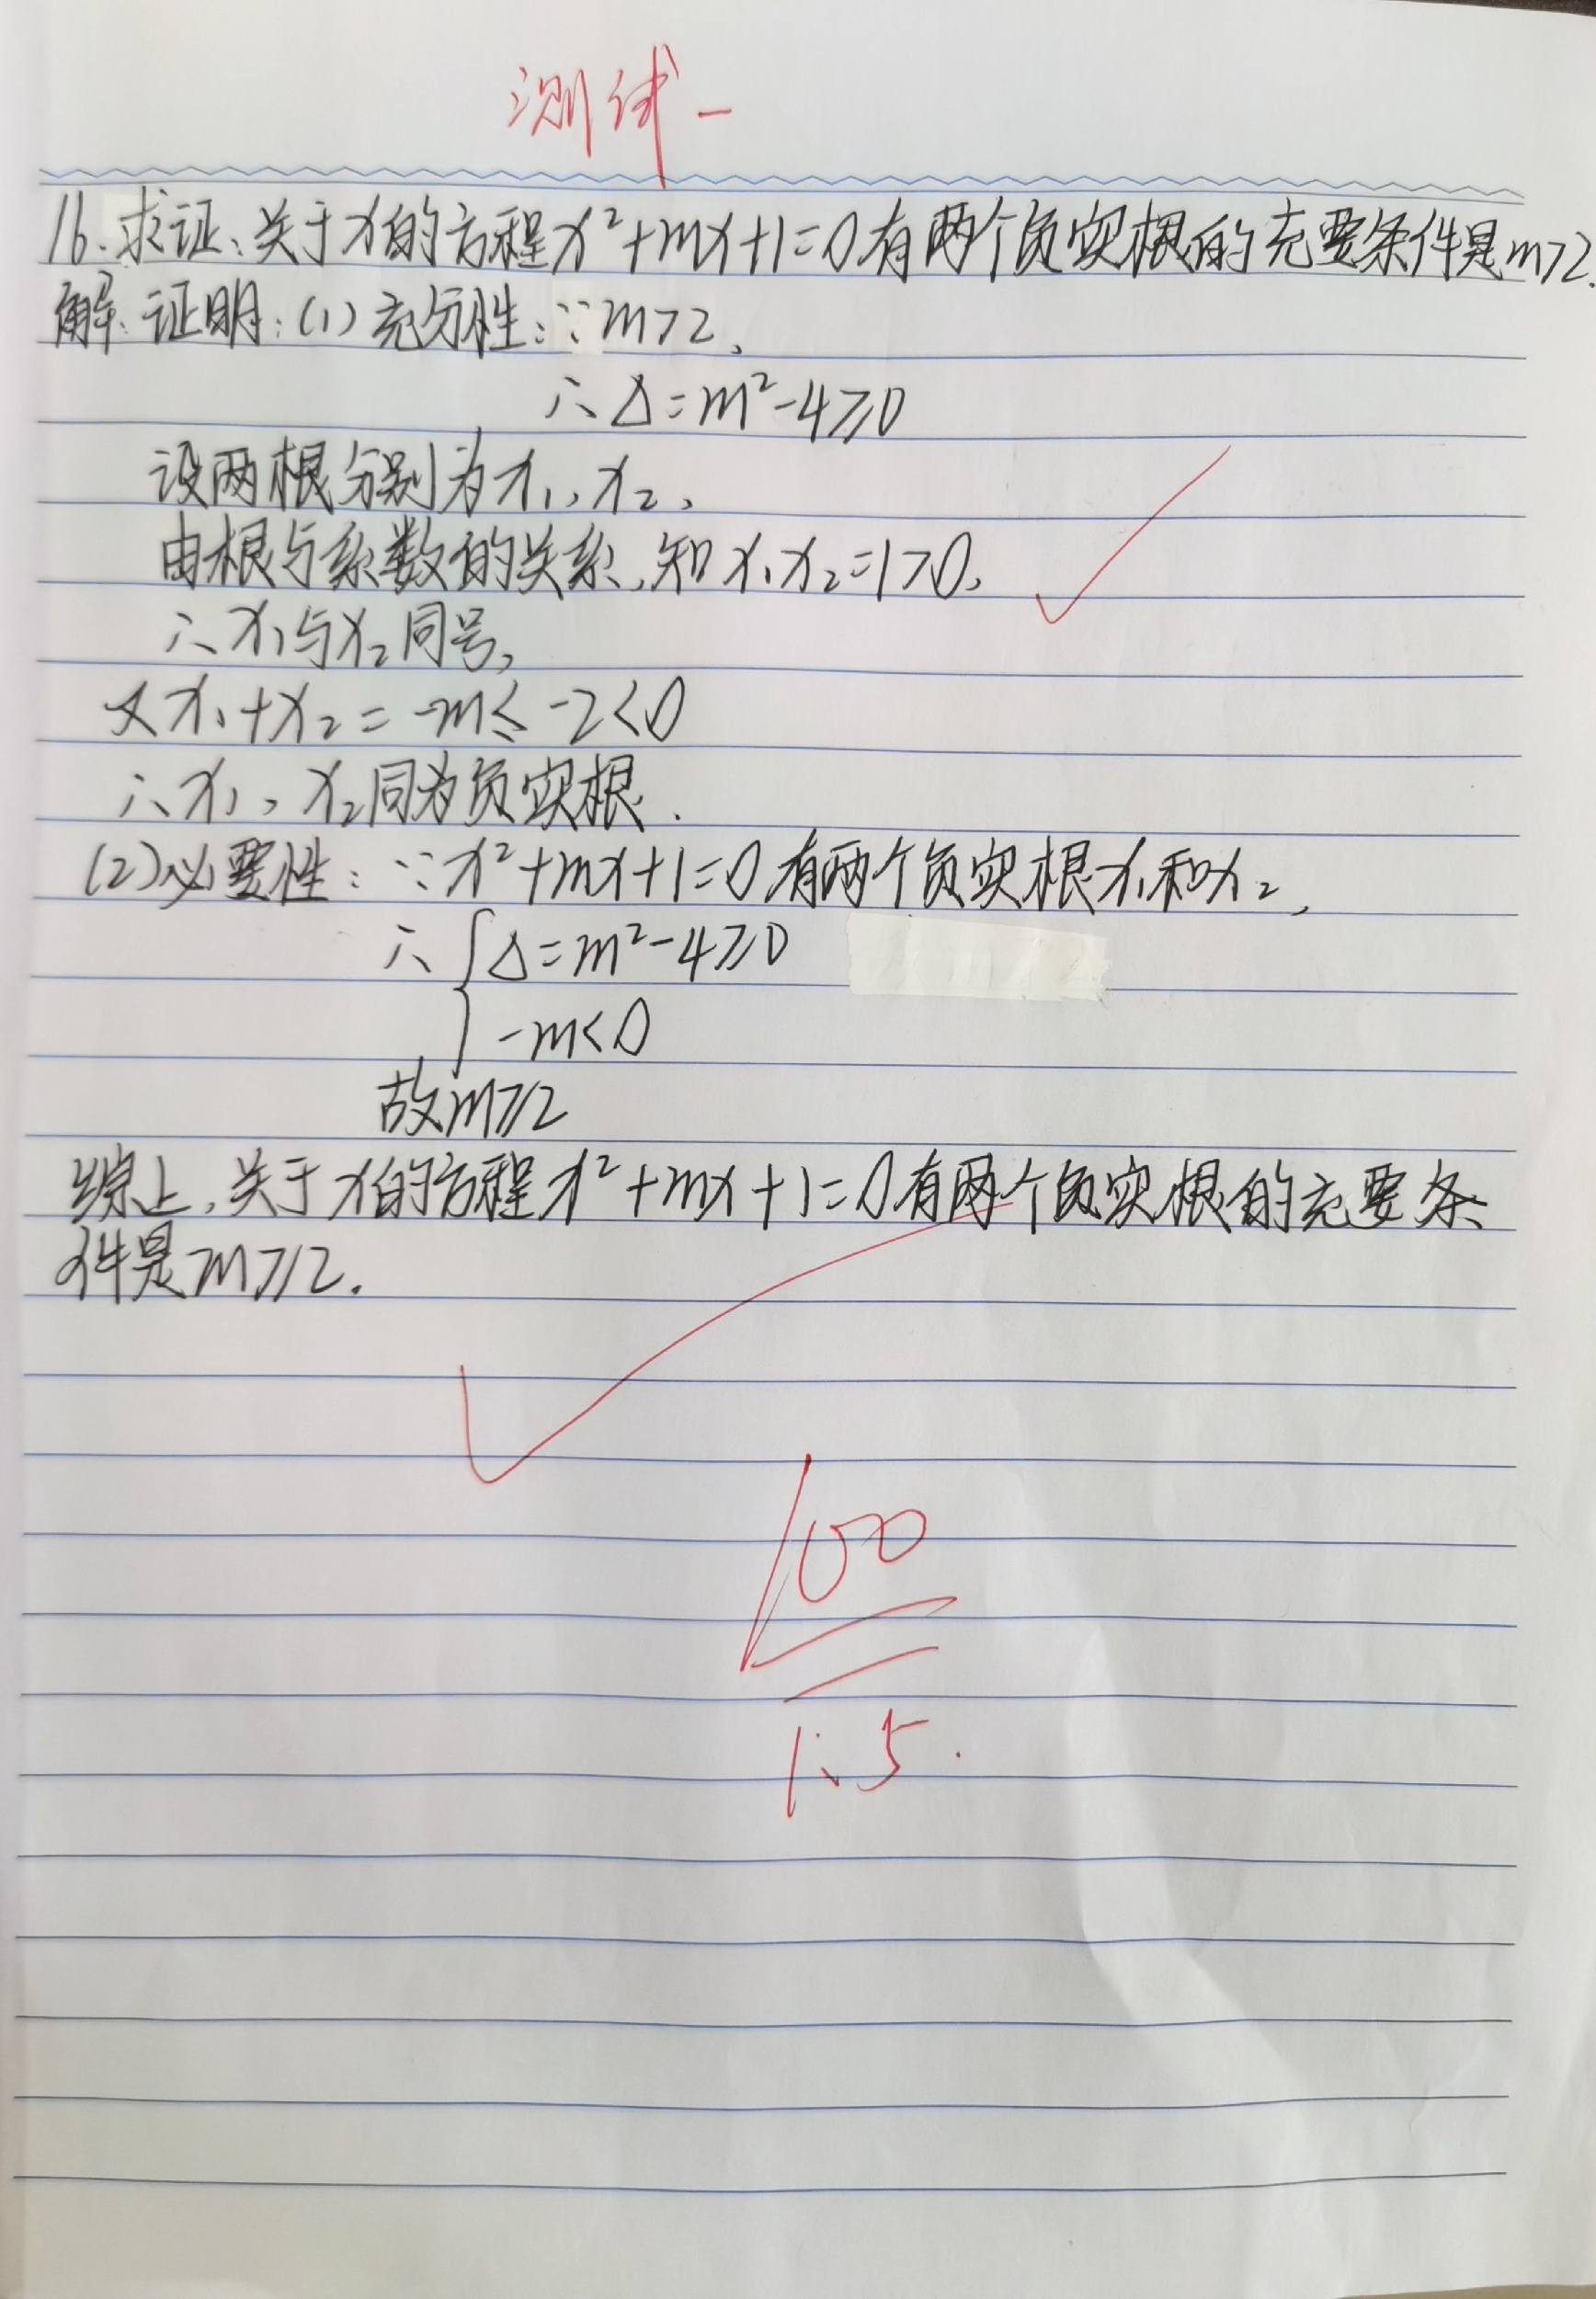 测试一
16.求证:关于x的方程x²+mx+1=0有两个负实根的充要条件是m≥2.
解:证明:(1)充分性:∵m≥2,
∴Δ=m²-4≥0
设两根分别为x₁,x₂,
由根与系数的关系,知x₁x₂=1>0,
∴x₁与x₂同号,
又x₁+x₂=-m≤-2<0
∴x₁,x₂同为负实根.
(2)必要性:∵x²+mx+1=0有两个负实根x₁和x₂,
∴{Δ=m²-4≥0
-m<0
故m≥2
综上,关于x的方程x²+mx+1=0有两个负实根的充要条
件是m≥2.
100
1.5.